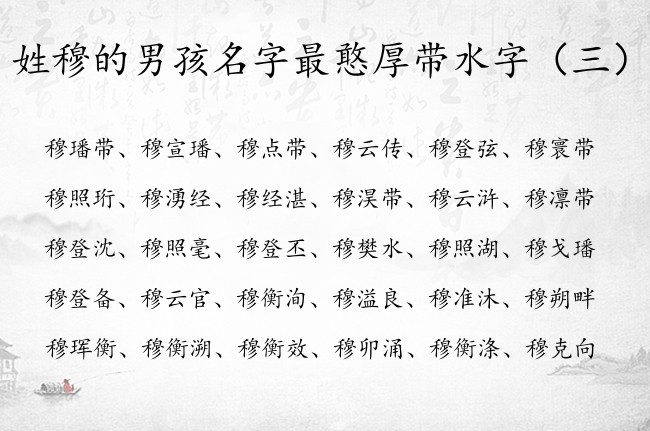 姓穆的男孩名字最憨厚带水字（三）
穆璠带、穆宣璠、穆点带、穆云传、穆登弦、穆寰带
穆照珩、穆湧经、穆经湛、穆淏带、穆云浒、穆凛带
穆登沈、穆照毫、穆登丕、穆樊水、穆照湖、穆戈璠
穆登备、穆云官、穆衡洵、穆溢良、穆准沐、穆朔畔
穆珲衡、穆衡溯、穆衡效、穆卯涌、穆衡涤、穆克向